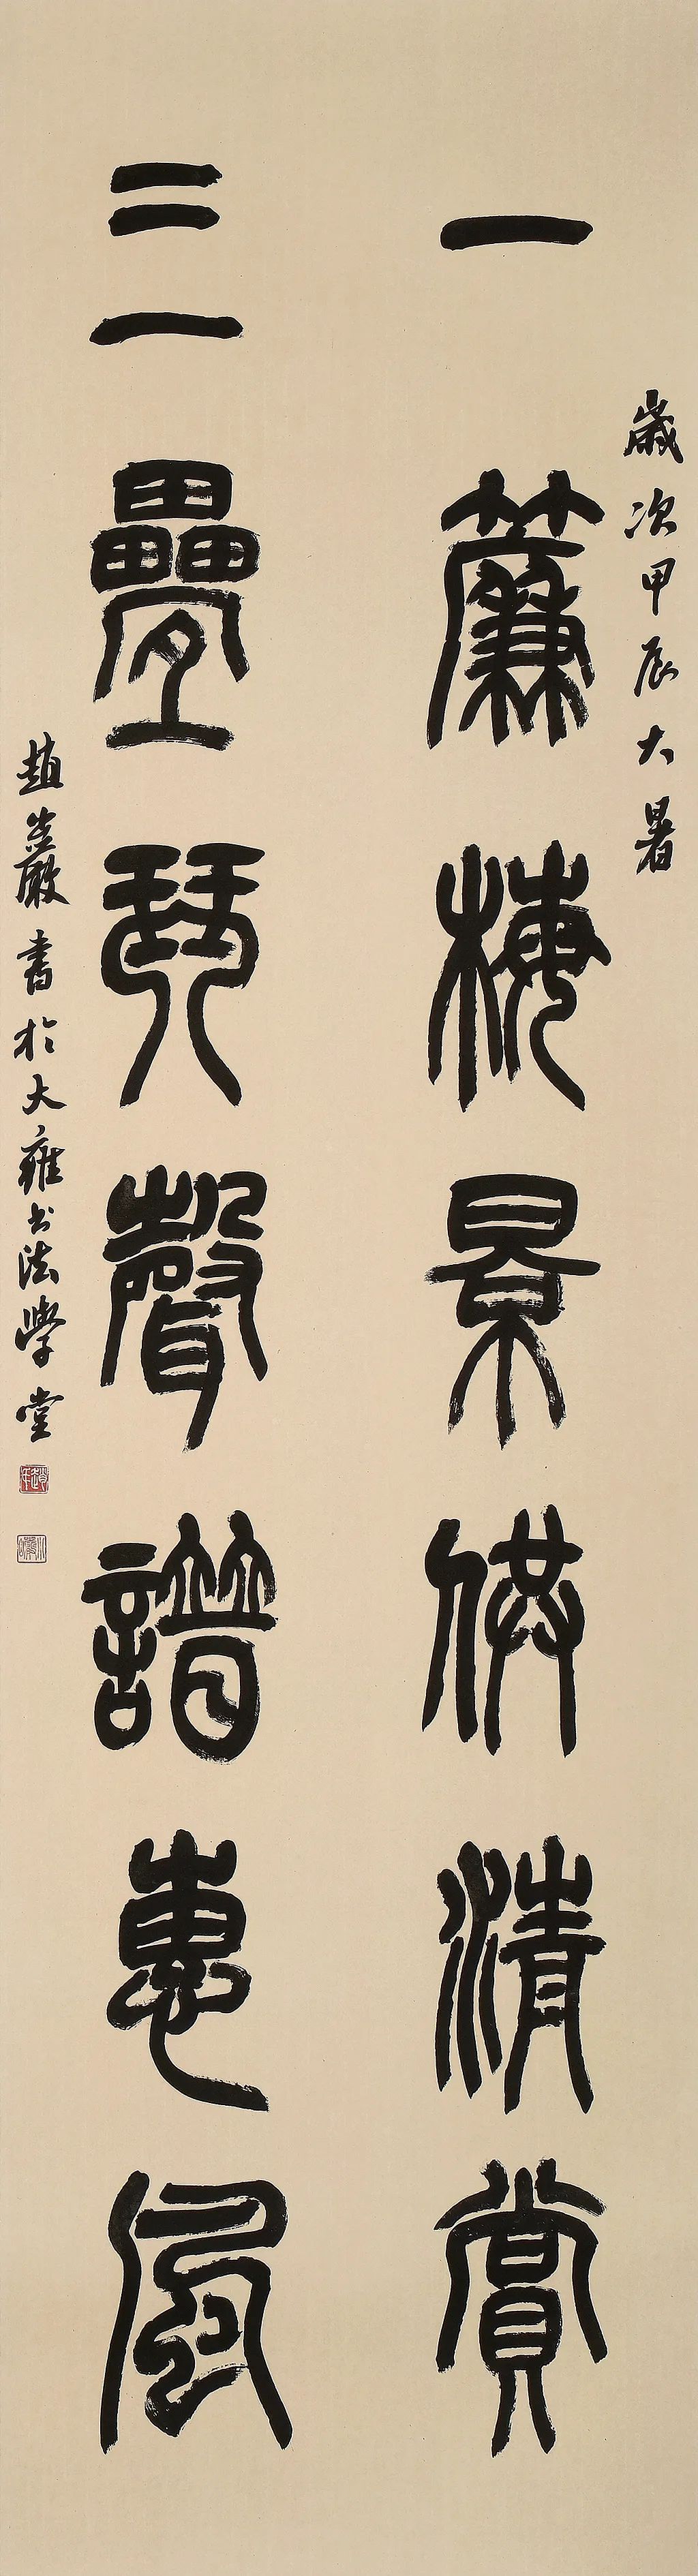 歲次甲辰大暑
一簾梅景供清賞
三疊琴聲譜惠風
趙岩嚴書於大雅書法學堂